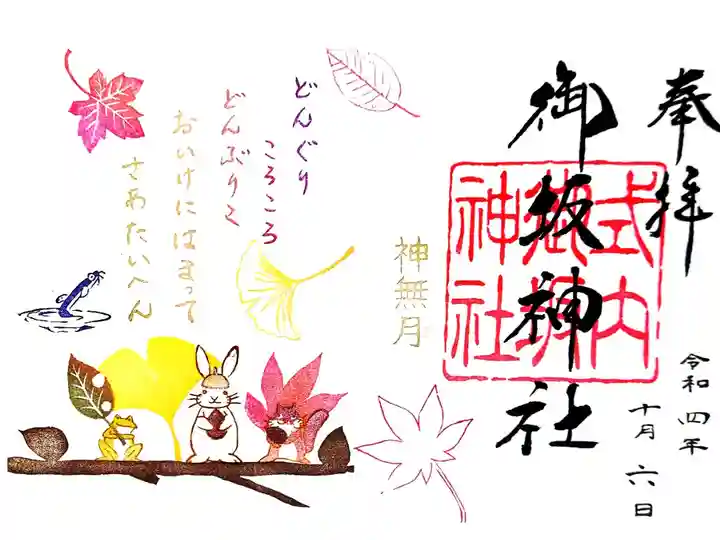 奉拝
御坂神社
式内
御坂
神社
令和四年
十月六日
神無月
どんぐり
ころころ
どんぶりこ
おいけにはまって
さあたいへん